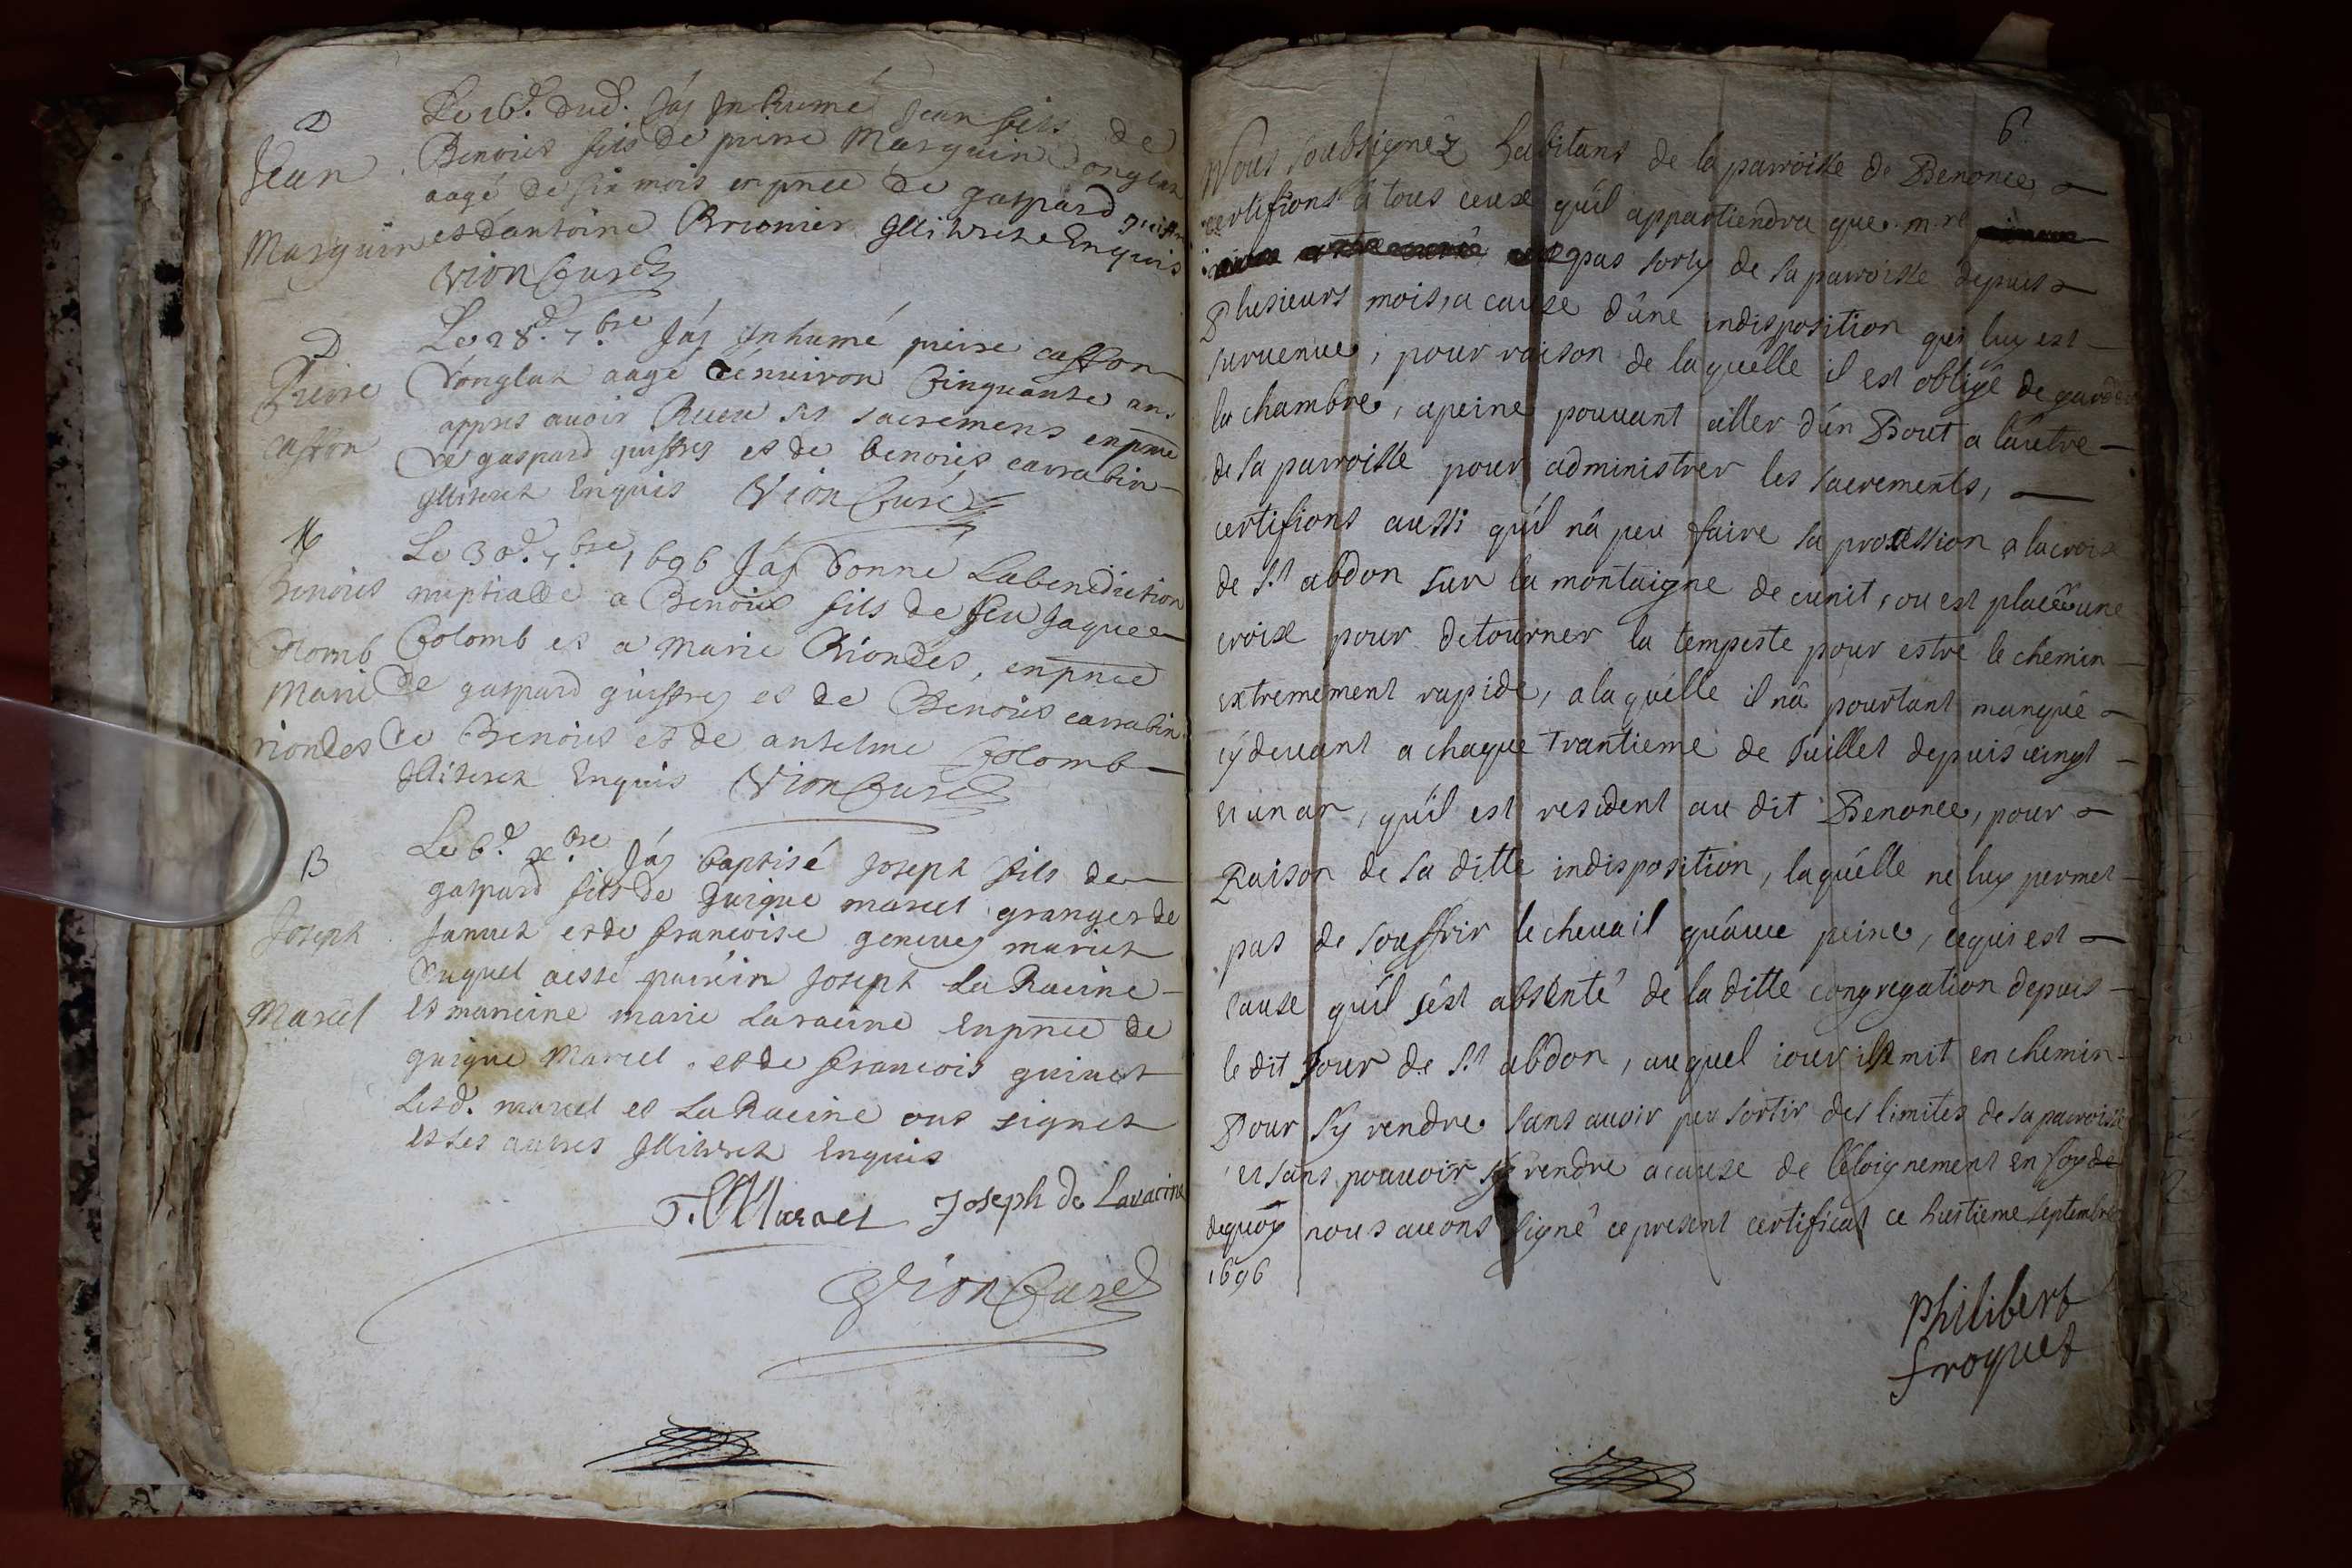 D
Jean
Marguin
Le 16.e dud. Jáy Inhumé Jean fils de
Benoist fils de pierre Marguin Donglas
aagé de six mois enpnce de gaspard
et dantoine Brionier Illiterés Enquis
Vion Curé
D
Pierre
caston
Le 28.e 7.bre Jáy Inhumé pierre caston
Donglas aagé denuiron Cinquante ans
appres auoir Receu ses sacremens enpnce
De gaspard guistrey et de benoist carrabin
Illiterés Enquis Vion Curé
M
Benoist
Colomb
Marie
riondes
Le 30.e 7.bre 1696 Jáy Donné La benediction
nuptialle a Benoist fils de feu Jaques
Colomb et a Marie Riondes, enpnce
de gaspard guistrey et de Benoist carrabin
de Benoist et de anselme Colomb
Illiterés Enquis Vion Curé
B
Joseph
Marcel
Le 6.e x.bre Jáy baptisé Joseph fils de
gaspard fils de guigue marcel granger de
et de francoise geneuey mariés
Duquel aesté parrein Joseph La Racine
Et mareine marie Laracine Enpnce de
guigue Marcel et de francois guinet
Lesd. marcel et La Racine ont signés
et les autres Illiterés Enquis
Marcel Joseph de Laracine
Vion Curé
6.
Nous soubsignéz habitans de la parroisse de Benonce
certifions à tous ceux qu'il appartiendra que m.re
pas sorty de sa parroisse depuis
Plusieurs mois, a cause d'une indisposition qui luy est
suruenue, pour raison de laquelle il est obligé de garder
la chambre, apeine pouuant aller d'un Bout a lautre
de sa parroisse pour administrer les sacrements,
certifions aussi qu'il na peu faire sa procession a la croix
de S.t abdon sur la montaigne de cunit, ou est placée une
croix pour detourner la tempeste pour estre le chemin
extremement rapide, a laquelle il na pourtant manqué
cy deuant a chaque Trantieme de Juillet depuis vingt
et un an, qu'il est resident au dit Benonce, pour
Raison de sa ditte indisposition, laquelle ne luy permet
pas de souffrir le cheuail quáuec peine, ce qui est
cause qu'il s'est absenté de la ditte congregation depuis
le dit Jour de S.t abdon, auquel iour il se mit en chemin
Pour sy rendre sans auoir peu sortir des limites de sa parroisse
et sans pouuoir sy rendre a cause de l'éloignement en foy de
dequoy nous auons signé ce present certificat ce huitieme septembre
1696
philibert
froquet